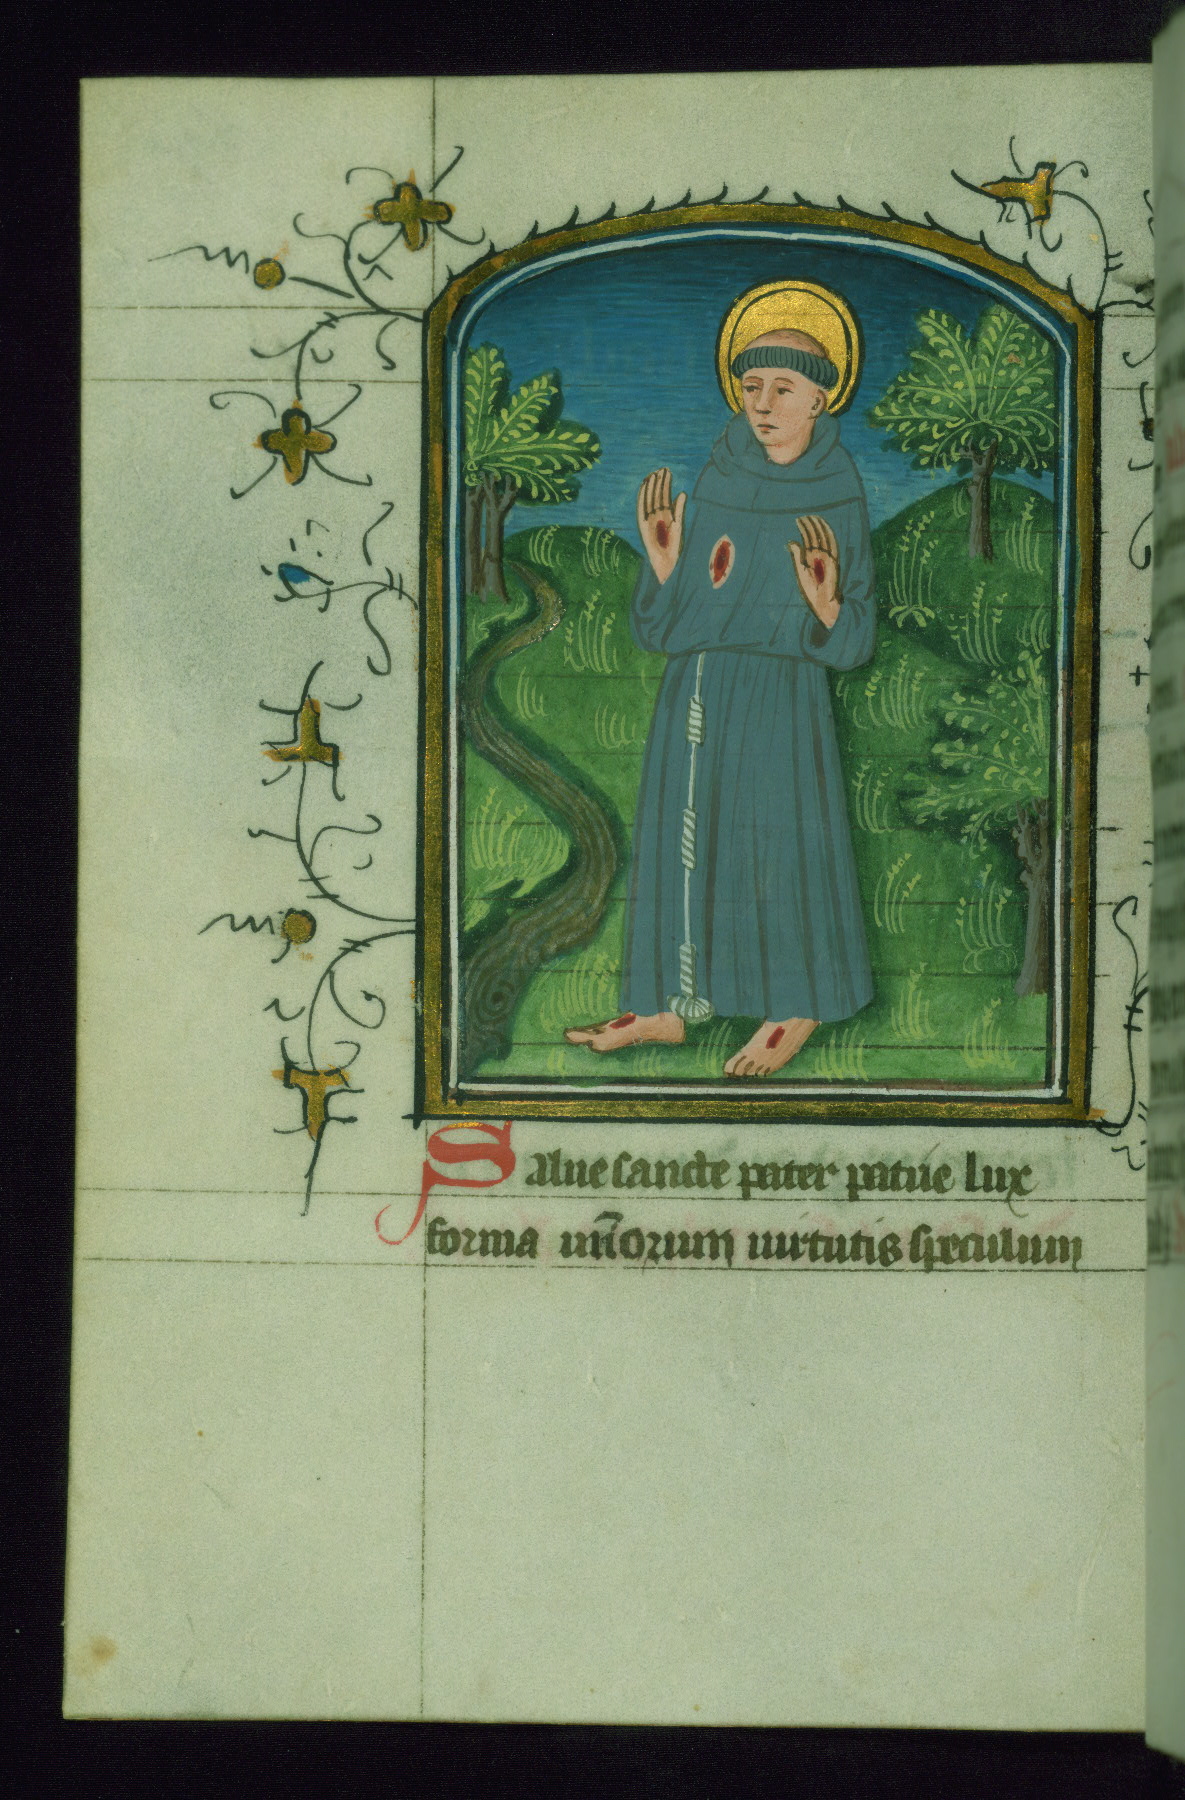 Salue sancte pater patrie lux
forma mi̅orum uirtutis speculum